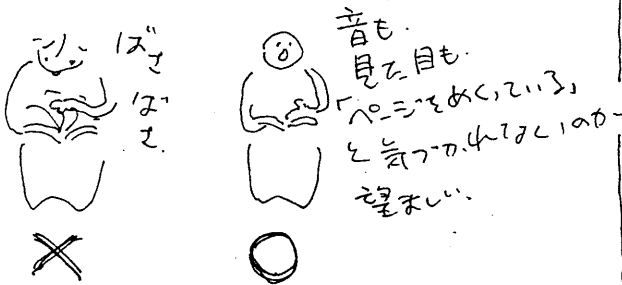 ばさ
ばさ
音も.
見た目も.
「ページをめくっている」
と気づかれないのが
望ましい.